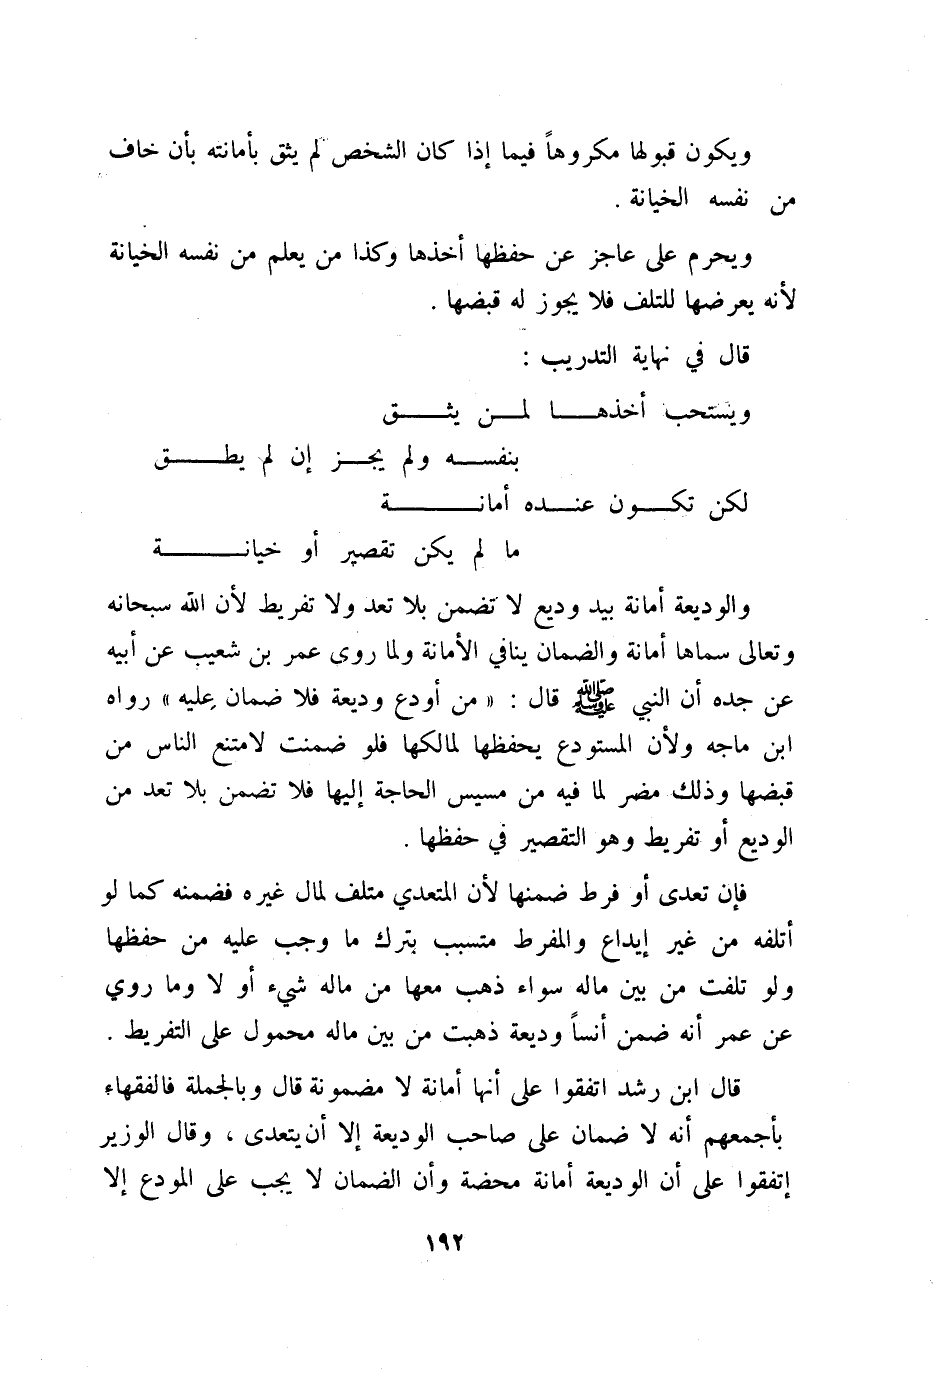 ويكون قبولها مكروهاً فيما إذا كان الشخص لم يثق بأمانته بأن خاف
من نفسه الخيانة .
ويحرم على عاجز عن حفظها أخذها وكذا من يعلم من نفسه الخيانة
لأنه يعرضها للتلف فلا يجوز له قبضها .
قال في نهاية التدريب :
ويستحب أخذهـــا لمــن يثـــق
بنفســـه ولم يجـــز إن لم يطـــق
لكن تكـــون عنـــده أمانـــــة
ما لم يكن تقصير أو خيانـــــة
والوديعة أمانة بيد وديع لا تضمن بلا تعد ولا تفريط لأن الله سبحانه
وتعالى سماها أمانة والضمان ينافي الأمانة ولما روى عمر بن شعيب عن أبيه
عن جده أن النبي ﷺ قال : « من أودع وديعة فلا ضمان عليه » رواه
ابن ماجه ولأن المستودع يحفظها لمالكها فلو ضمنت لامتنع الناس من
قبضها وذلك مضر لما فيه من مسيس الحاجة إليها فلا تضمن بلا تعد من
الوديع أو تفريط وهو التقصير في حفظها .
فإن تعدى أو فرط ضمنها لأن المتعدي متلف لمال غيره فضمنه كما لو
أتلفه من غير إيداع والمفرط متسبب بترك ما وجب عليه من حفظها
ولو تلفت من بين ماله سواء ذهب معها من ماله شيء أو لا وما روي
عن عمر أنه ضمن أنساً وديعة ذهبت من بين ماله محمول على التفريط .
قال ابن رشد اتفقوا على أنها أمانة لا مضمونة قال وبالجملة فالفقهاء
بأجمعهم أنه لا ضمان على صاحب الوديعة إلا أن يتعدى ، وقال الوزير
إتفقوا على أن الوديعة أمانة محضة وأن الضمان لا يجب على المودع إلا
١٩٢